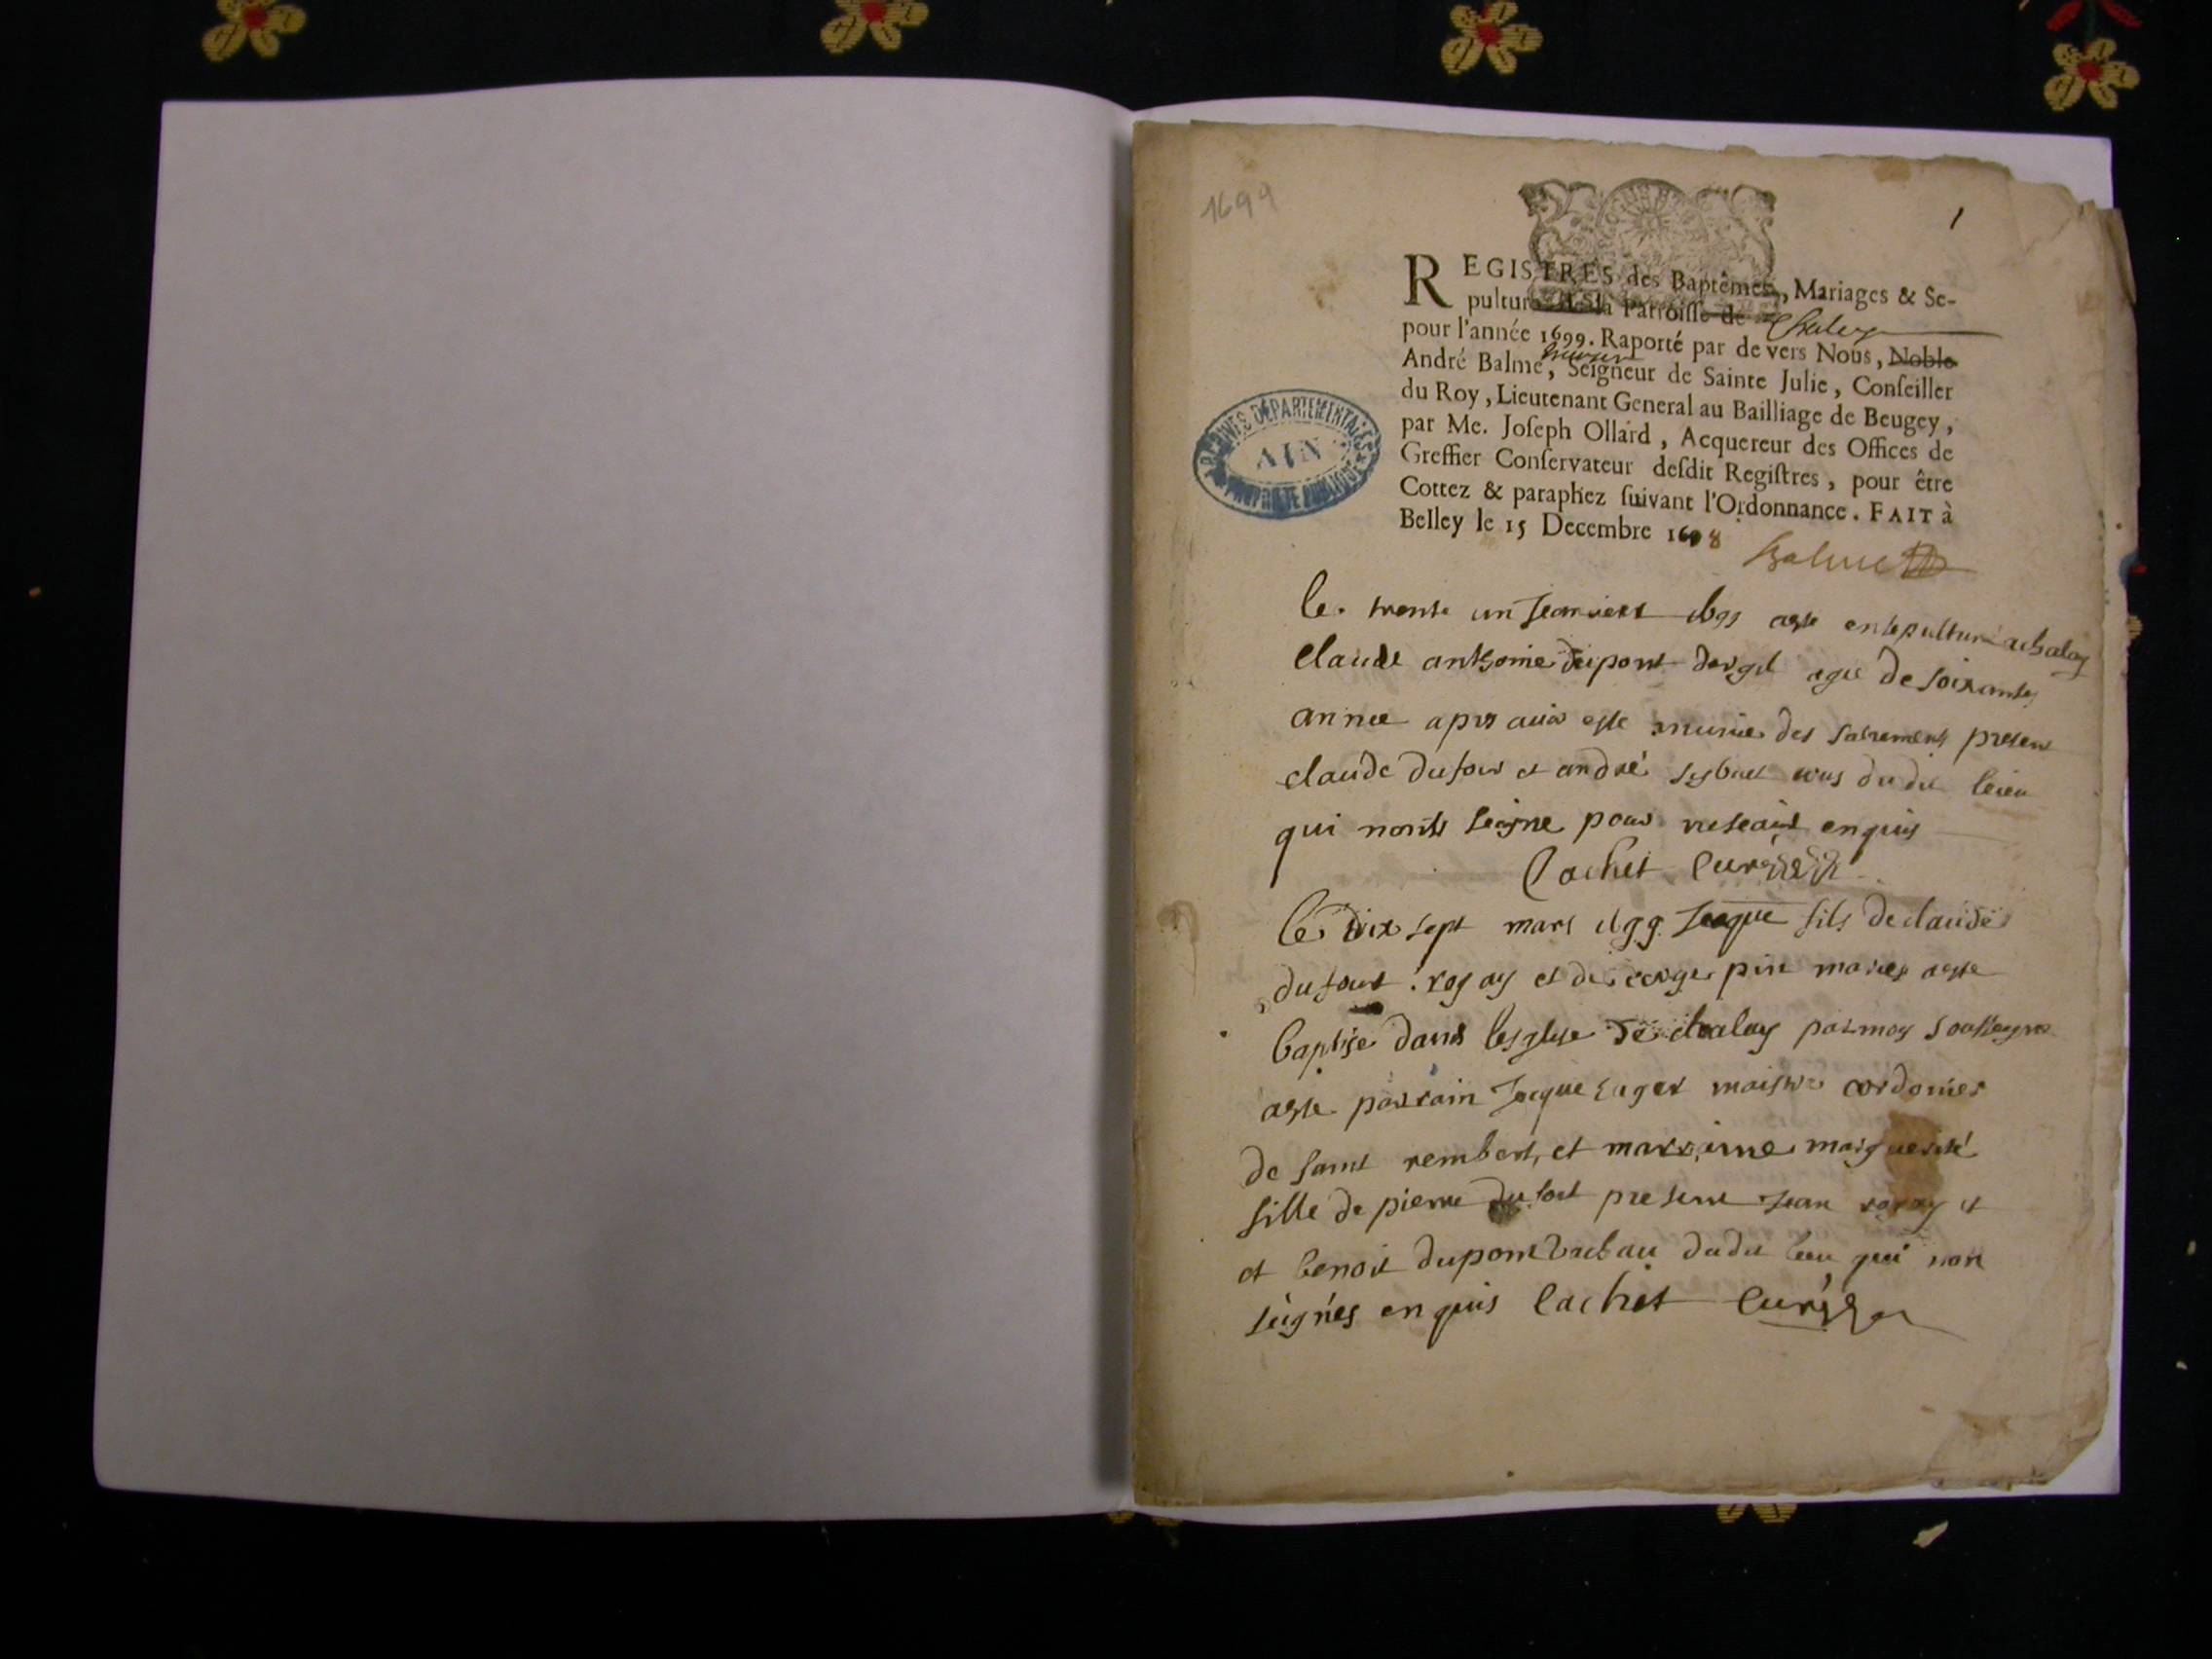 1699
1
REGISTRES des Baptêmes, Mariages & Se-
pultures de la Parroisse de Chaley
pour l'année 1699. Raporté par de vers Nous, Noble
André Balme, Seigneur de Sainte Julie, Conseiller
du Roy, Lieutenant General au Bailliage de Beugey,
par Me. Joseph Ollard, Acquereur des Offices de
Greffier Conservateur desdit Registres, pour être
Cottez & paraphez suivant l'Ordonnance. FAIT à
Belley le 15 Decembre 1698
Balme
ARCHIVES DÉPARTEMENTALES
AIN
PROPRIÉTÉ PUBLIQUE
le trente un Jeanvier aeste ensepulture achaley
Claude anthoine dupont agee de soixantes
annee apres avoir este munie des sacrements present
claude dufour et andré du dit leieu
qui nonts seigne pour enquis
Cachet Curé
le dix sept mars Jeaque fils de claude
dufour rogay et de pin maries aeste
baptise dans lesglise de chaley par moy soussigne
aeste parrain Jacque maistre cordonier
de saint rembert, et marraine marguerite
fille de pierre dufour present Jean rogay et
et benoit dupont dudit lieu qui non
seignés enquis Cachet Curé